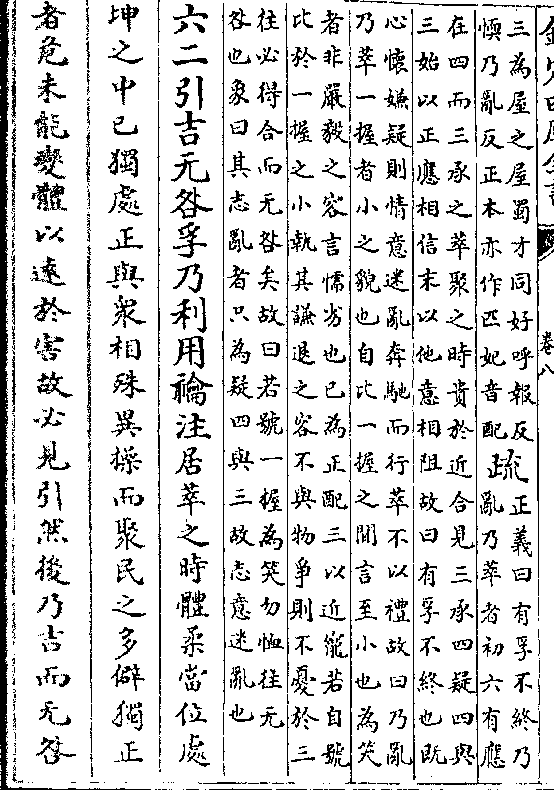 卷八
三為屋之屋蜀才同好呼報反
愞乃亂反正本亦作匹妃音配
疏
正義曰有孚不終乃
亂乃萃者初六有應
在四而三承之萃聚之時貴於近合見三承四疑四與
三始以正應相信末以他意相阻故曰有孚不終也既
心懷嫌疑則情意迷亂奔馳而行萃不以禮故曰乃亂
乃萃一握者小之貌也自比一握之間言至小也為笑
者非嚴毅之容言懦劣也已為正配三以近寵若自號
比於一握之小執其謙退之容不與物爭則不憂於三
往必得合而无咎矣故曰若號一握為笑勿恤往无
咎也象曰其志亂者只為疑四與三故志意迷亂也
六二引吉无咎孚乃利用禴注居萃之時體柔當位處
坤之中已獨處正與衆相殊異操而聚民之多僻獨正
者危未能變體以遠於害故必見引然後乃吉而无咎